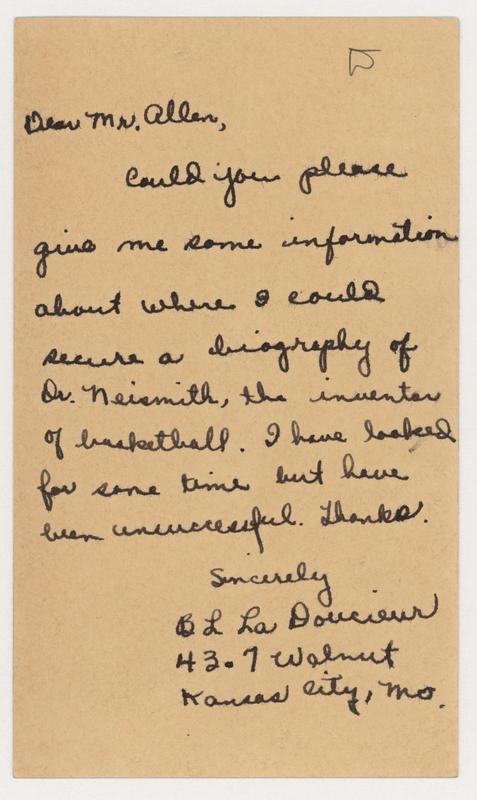 Dear Mr. Allen,
Could you please
give me some information
about where I could
secure a biography of
Dr. Neismith, the inventor
of basketball. I have looked
for some time but have
been unsuccessful. Thanks.
Sincerely
B L La Doucieur
43.7 Walnut
Kansas City, Mo.